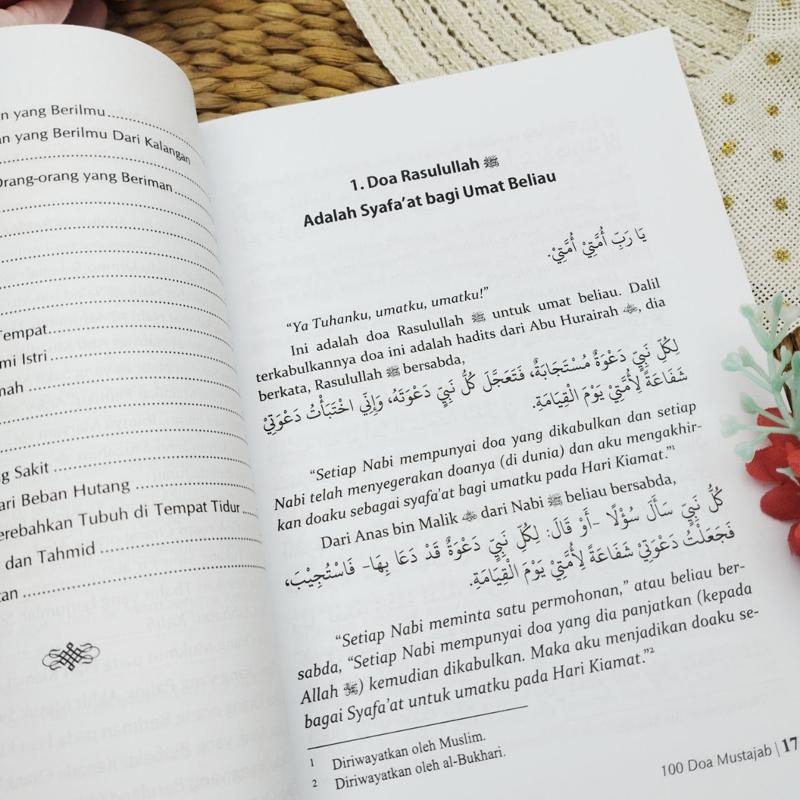 n yang Berilmu
an yang Berilmu Dari Kalangan
Orang-orang yang Beriman
Tempat
mi Istri
mah
g Sakit
ari Beban Hutang
erebahkan Tubuh di Tempat Tidur
dan Tahmid
tan
1. Doa Rasulullah ﷺ
Adalah Syafa’at bagi Umat Beliau
يَا رَبِّ أُمَّتِيْ أُمَّتِيْ.
“Ya Tuhanku, umatku, umatku!”
Ini adalah doa Rasulullah ﷺ untuk umat beliau. Dalil
terkabulkannya doa ini adalah hadits dari Abu Hurairah , dia
berkata, Rasulullah ﷺ bersabda,
لِكُلِّ نَبِيٍّ دَعْوَةٌ مُسْتَجَابَةٌ، فَتَعَجَّلَ كُلُّ نَبِيٍّ دَعْوَتَهُ، وَإِنِّي اخْتَبَأْتُ دَعْوَتِيْ
شَفَاعَةً لِأُمَّتِيْ يَوْمَ الْقِيَامَةِ.
“Setiap Nabi mempunyai doa yang dikabulkan dan setiap
Nabi telah menyegerakan doanya (di dunia) dan aku mengakhir-
kan doaku sebagai syafa’at bagi umatku pada Hari Kiamat.”¹
Dari Anas bin Malik dari Nabi ﷺ beliau bersabda,
كُلُّ نَبِيٍّ سَأَلَ سُؤْلًا -أَوْ قَالَ: لِكُلِّ نَبِيٍّ دَعْوَةٌ قَدْ دَعَا بِهَا- فَاسْتُجِيْبَ،
فَجَعَلْتُ دَعْوَتِيْ شَفَاعَةً لِأُمَّتِيْ يَوْمَ الْقِيَامَةِ.
“Setiap Nabi meminta satu permohonan,” atau beliau ber-
sabda, “Setiap Nabi mempunyai doa yang dia panjatkan (kepada
Allah ) kemudian dikabulkan. Maka aku menjadikan doaku se-
bagai Syafa’at untuk umatku pada Hari Kiamat.”²
1 Diriwayatkan oleh Muslim.
2 Diriwayatkan oleh al-Bukhari.
100 Doa Mustajab | 17